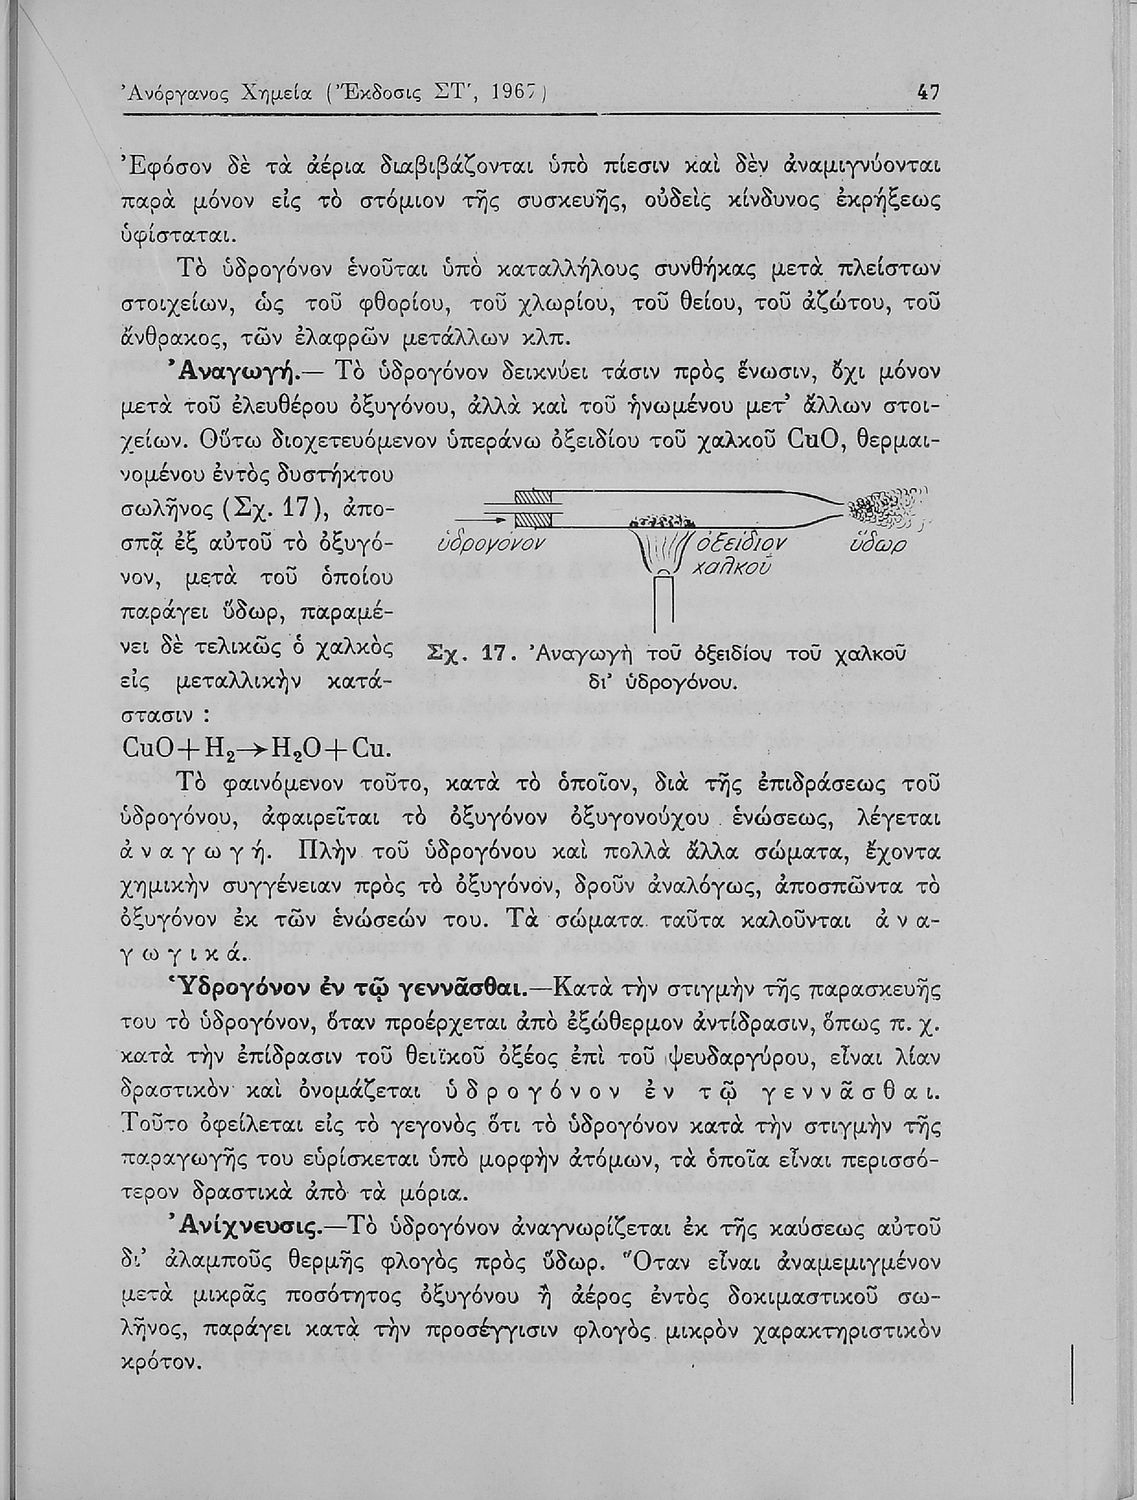 Ἀνόργανος Χημεία (Ἔκδοσις ΣΤʹ, 1967)
47
Ἐφόσον δὲ τὰ ἀέρια διαβιβάζονται ὑπὸ πίεσιν καὶ δὲν ἀναμιγνύονται
παρὰ μόνον εἰς τὸ στόμιον τῆς συσκευῆς, οὐδεὶς κίνδυνος ἐκρήξεως
ὑφίσταται.
Τὸ ὑδρογόνον ἑνοῦται ὑπὸ καταλλήλους συνθήκας μετὰ πλείστων
στοιχείων, ὡς τοῦ φθορίου, τοῦ χλωρίου, τοῦ θείου, τοῦ ἀζώτου, τοῦ
ἄνθρακος, τῶν ἐλαφρῶν μετάλλων κλπ.
Ἀναγωγή.— Τὸ ὑδρογόνον δεικνύει τάσιν πρὸς ἕνωσιν, ὄχι μόνον
μετὰ τοῦ ἐλευθέρου ὀξυγόνου, ἀλλὰ καὶ τοῦ ἡνωμένου μετ' ἄλλων στοι-
χείων. Οὕτω διοχετευόμενον ὑπεράνω ὀξειδίου τοῦ χαλκοῦ CuO, θερμαι-
νομένου ἐντὸς δυστήκτου
σωλῆνος (Σχ. 17), ἀπο-
σπᾷ ἐξ αὐτοῦ τὸ ὀξυγό-
νον, μετὰ τοῦ ὁποίου
παράγει ὕδωρ, παραμέ-
νει δὲ τελικῶς ὁ χαλκὸς
εἰς μεταλλικὴν κατά-
στασιν :
CuO+H₂→H₂O+Cu.
ὑδρογόνον
ὀξείδιον
χαλκοῦ
ὕδωρ
Σχ. 17. Ἀναγωγὴ τοῦ ὀξειδίου τοῦ χαλκοῦ
δι' ὑδρογόνου.
Τὸ φαινόμενον τοῦτο, κατὰ τὸ ὁποῖον, διὰ τῆς ἐπιδράσεως τοῦ
ὑδρογόνου, ἀφαιρεῖται τὸ ὀξυγόνον ὀξυγονούχου ἑνώσεως, λέγεται
ἀ ν α γ ω γ ή. Πλὴν τοῦ ὑδρογόνου καὶ πολλὰ ἄλλα σώματα, ἔχοντα
χημικὴν συγγένειαν πρὸς τὸ ὀξυγόνον, δροῦν ἀναλόγως, ἀποσπῶντα τὸ
ὀξυγόνον ἐκ τῶν ἑνώσεών του. Τὰ σώματα ταῦτα καλοῦνται ἀ ν α-
γ ω γ ι κ ά.
Ὑδρογόνον ἐν τῷ γεννᾶσθαι.—Κατὰ τὴν στιγμὴν τῆς παρασκευῆς
του τὸ ὑδρογόνον, ὅταν προέρχεται ἀπὸ ἐξώθερμον ἀντίδρασιν, ὅπως π. χ.
κατὰ τὴν ἐπίδρασιν τοῦ θειϊκοῦ ὀξέος ἐπὶ τοῦ ψευδαργύρου, εἶναι λίαν
δραστικὸν καὶ ὀνομάζεται ὑ δ ρ ο γ ό ν ο ν ἐ ν τ ῷ γ ε ν ν ᾶ σ θ α ι.
Τοῦτο ὀφείλεται εἰς τὸ γεγονὸς ὅτι τὸ ὑδρογόνον κατὰ τὴν στιγμὴν τῆς
παραγωγῆς του εὑρίσκεται ὑπὸ μορφὴν ἀτόμων, τὰ ὁποῖα εἶναι περισσό-
τερον δραστικὰ ἀπὸ τὰ μόρια.
Ἀνίχνευσις.—Τὸ ὑδρογόνον ἀναγνωρίζεται ἐκ τῆς καύσεως αὐτοῦ
δι' ἀλαμποῦς θερμῆς φλογὸς πρὸς ὕδωρ. Ὅταν εἶναι ἀναμεμιγμένον
μετὰ μικρᾶς ποσότητος ὀξυγόνου ἢ ἀέρος ἐντὸς δοκιμαστικοῦ σω-
λῆνος, παράγει κατὰ τὴν προσέγγισιν φλογὸς μικρὸν χαρακτηριστικὸν
κρότον.